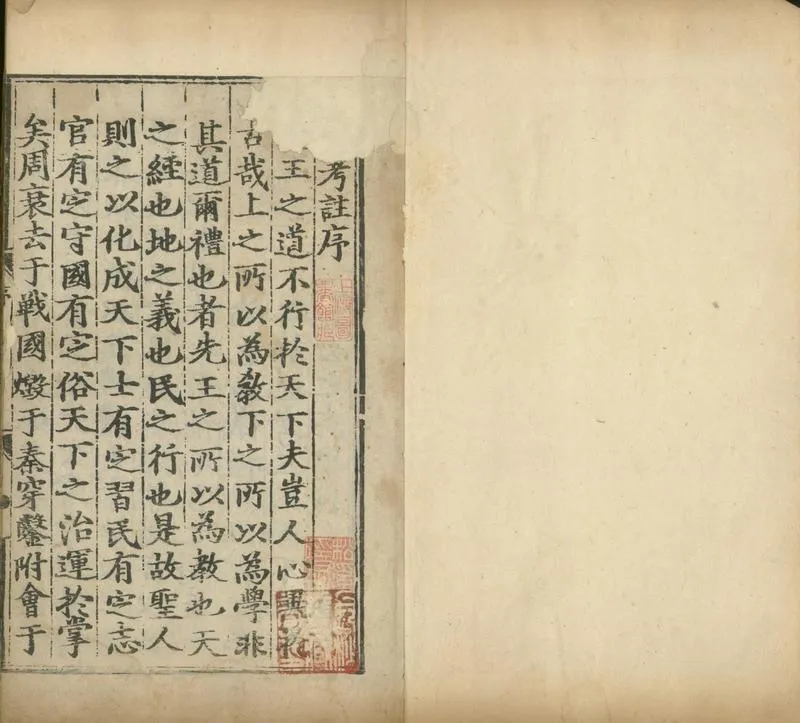 考註序
王之道不行於天下夫豈人心異於
古哉上之所以為教下之所以為學非
其道爾禮也者先王之所以為教也天
之經也地之義也民之行也是故聖人
則之以化成天下士有定習民有定志
官有定守國有定俗天下之治運於掌
矣周衰去于戰國燬于秦穿鑿附會于
序
上海圖
書館藏